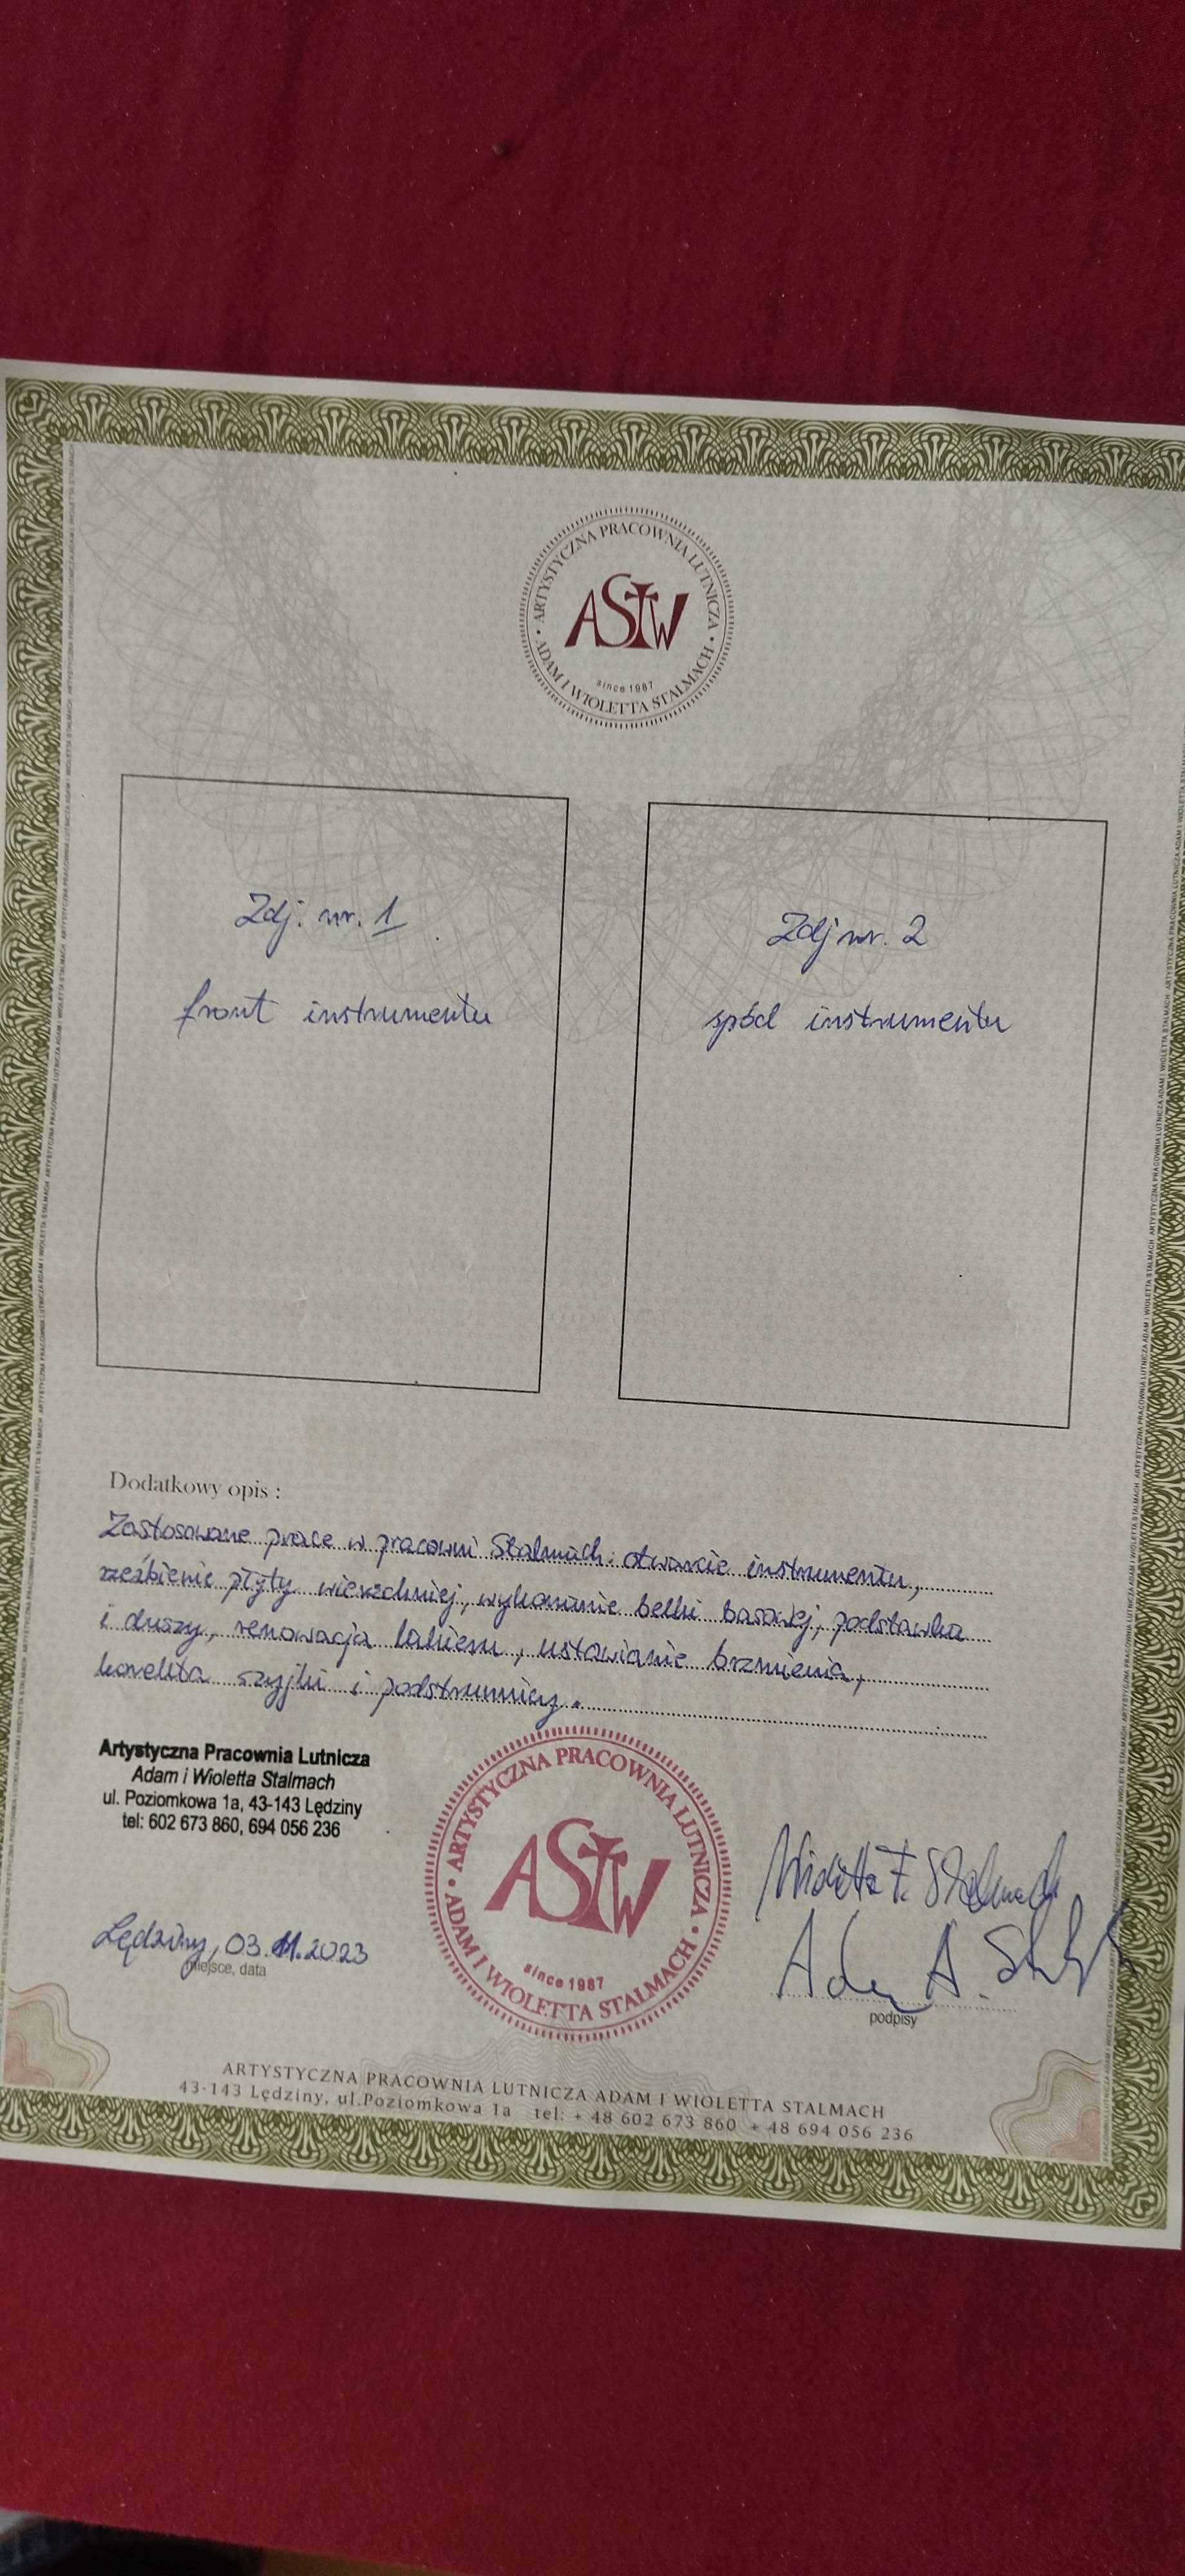 ARTYSTYCZNA PRACOWNIA LUTNICZA
ASTW
since 1987
ADAM I WIOLETTA STALMACH
Zdj. nr. 1
front instrumentu
Zdj nr. 2
spód instrumentu
Dodatkowy opis :
Zastosowane prace w pracowni Stalmach: otwarcie instrumentu,
rzeźbienie płyty wierzchniej, wykonanie belki basowej, podstawka
i duszy, renowacja lakieru, ustawianie brzmienia,
korekta szyjki i podstrunnicy.
Artystyczna Pracownia Lutnicza
Adam i Wioletta Stalmach
ul. Poziomkowa 1a, 43-143 Lędziny
tel: 602 673 860, 694 056 236
ARTYSTYCZNA PRACOWNIA LUTNICZA
ASTW
since 1987
ADAM I WIOLETTA STALMACH
Wioletta F. Stalmach
Adam A.
Lędziny, 03.11.2023
miejsce, data
podpisy
ARTYSTYCZNA PRACOWNIA LUTNICZA ADAM I WIOLETTA STALMACH
43-143 Lędziny, ul.Poziomkowa 1a tel: + 48 602 673 860 + 48 694 056 236